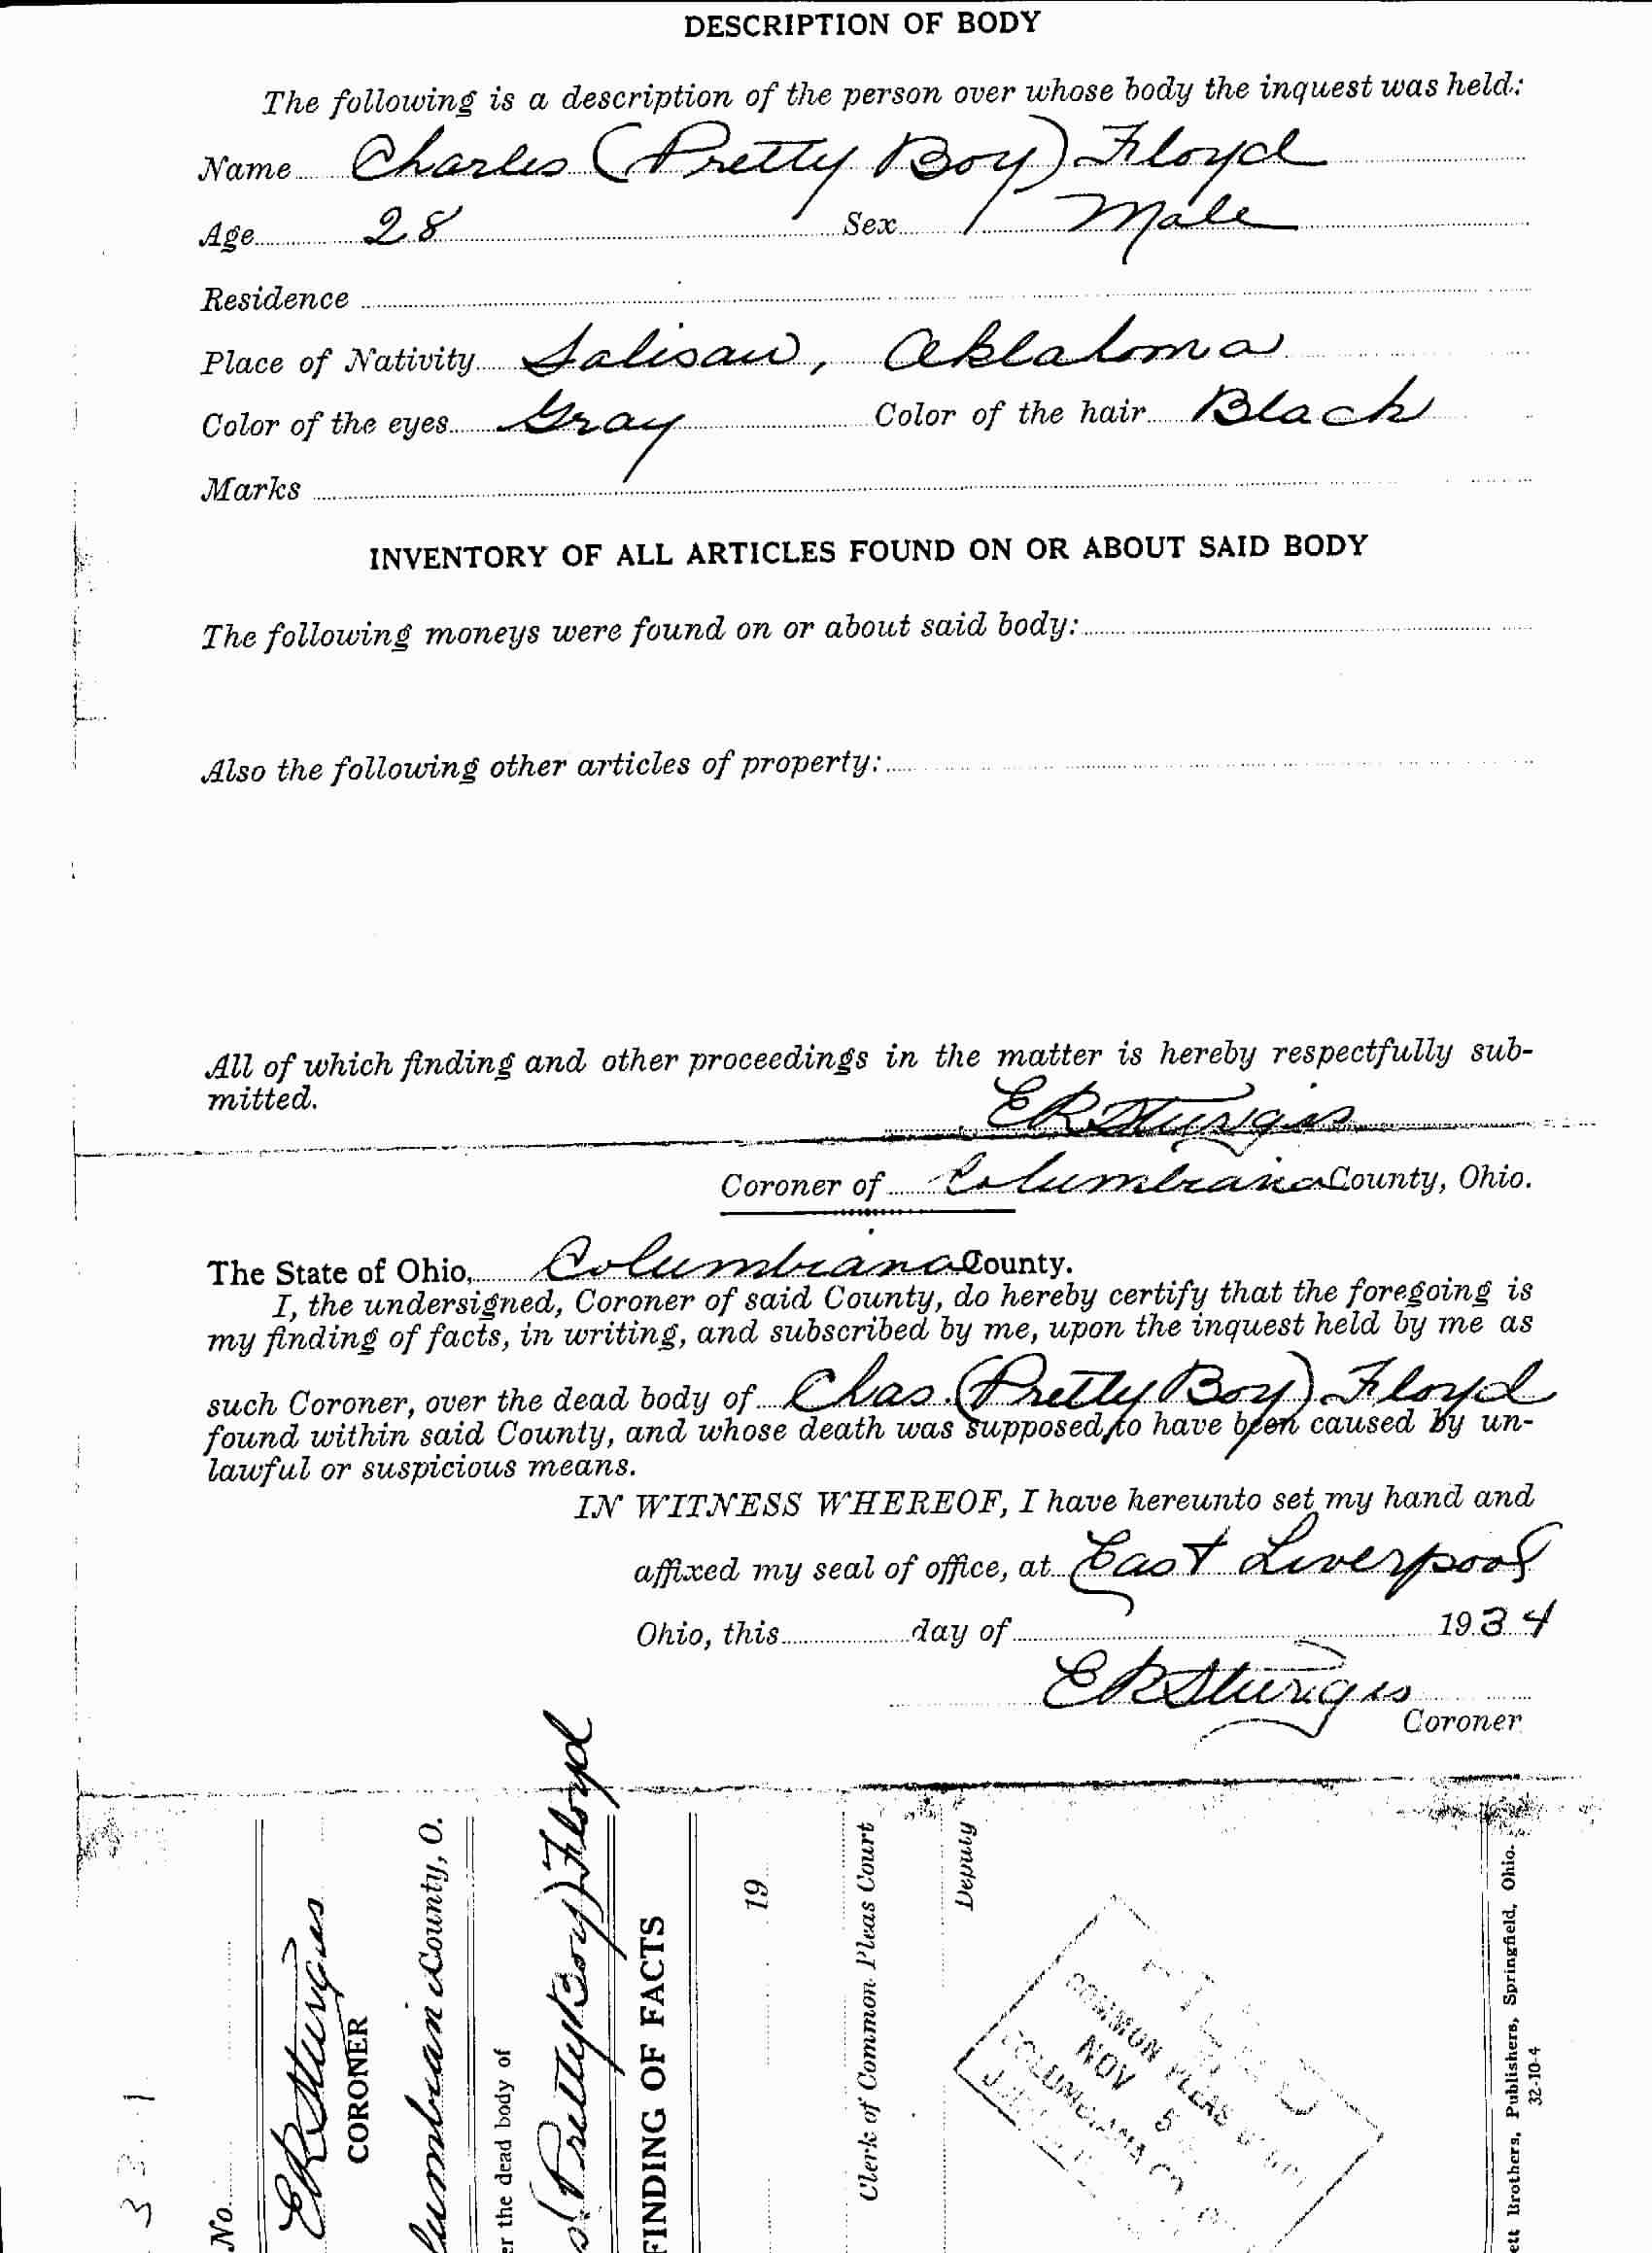 DESCRIPTION OF BODY
The following is a description of the person over whose body the inquest was held:
Name Charles (Pretty Boy) Floyd
Age 28 Sex Male
Residence
Place of Nativity Salisaw, Oklahoma
Color of the eyes Gray Color of the hair Black
Marks
INVENTORY OF ALL ARTICLES FOUND ON OR ABOUT SAID BODY
The following moneys were found on or about said body:
Also the following other articles of property:
All of which finding and other proceedings in the matter is hereby respectfully sub-
mitted.
E R Sturgis
Coroner of Columbiana County, Ohio.
The State of Ohio, Columbiana County.
I, the undersigned, Coroner of said County, do hereby certify that the foregoing is
my finding of facts, in writing, and subscribed by me, upon the inquest held by me as
such Coroner, over the dead body of Chas. (Pretty Boy) Floyd
found within said County, and whose death was supposed to have been caused by un-
lawful or suspicious means.
IN WITNESS WHEREOF, I have hereunto set my hand and
affixed my seal of office, at East Liverpool
Ohio, this day of 1934
E R Sturgis
Coroner
331
No.
E R Sturgis
CORONER
lumbiana County, O.
er the dead body of
s. (Pretty Boy) Floyd
FINDING OF FACTS
19
Clerk of Common Pleas Court
Deputy
FILED
COMMON PLEAS COURT
NOV 5
COLUMBIANA CO. O.
ett Brothers, Publishers, Springfield, Ohio.
32-10-4